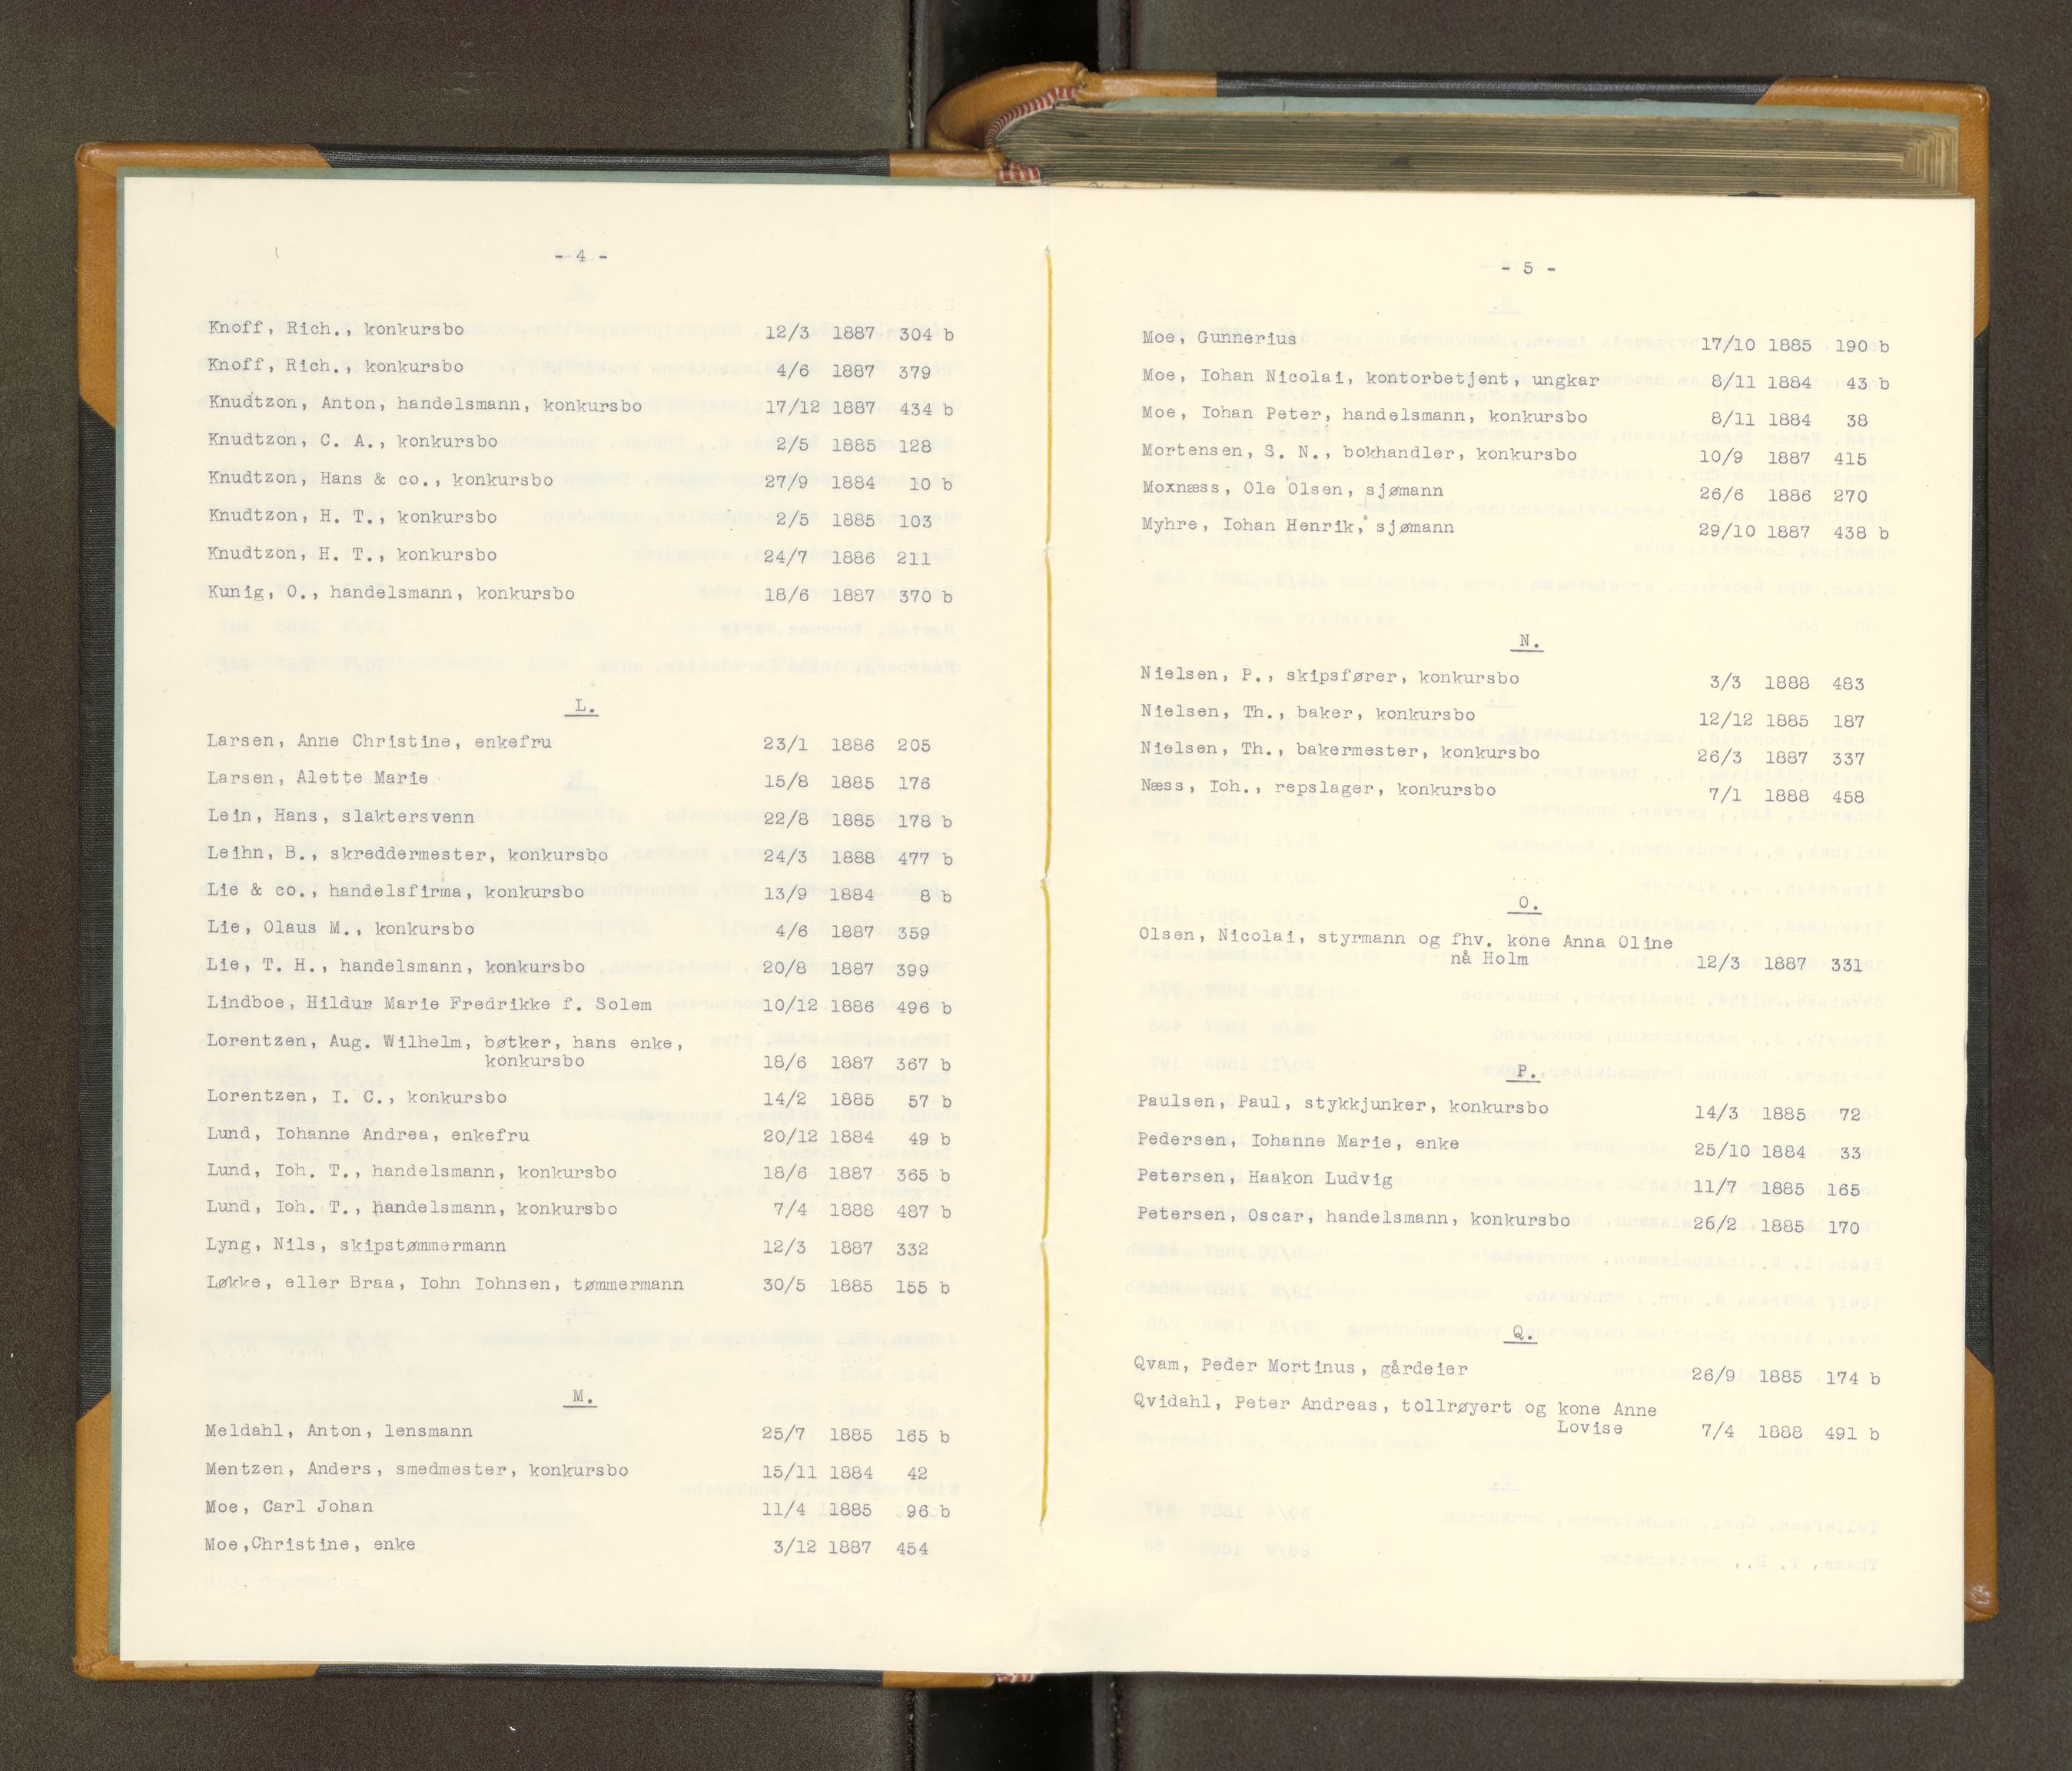 - 4 -
Knoff, Rich., konkursbo 12/3 1887 304 b
Knoff, Rich., konkursbo 4/6 1887 379
Knudtzon, Anton, handelsmann, konkursbo 17/12 1887 434 b
Knudtzon, C. A., konkursbo 2/5 1885 128
Knudtzon, Hans & co., konkursbo 27/9 1884 10 b
Knudtzon, H. T., konkursbo 2/5 1885 103
Knudtzon, H. T., konkursbo 24/7 1886 211
Kunig, O., handelsmann, konkursbo 18/6 1887 370 b
L.
Larsen, Anne Christine, enkefru 23/1 1886 205
Larsen, Alette Marie 15/8 1885 176
Lein, Hans, slaktersvenn 22/8 1885 178 b
Leihn, B., skreddermester, konkursbo 24/3 1888 477 b
Lie & co., handelsfirma, konkursbo 13/9 1884 8 b
Lie, Olaus M., konkursbo 4/6 1887 359
Lie, T. H., handelsmann, konkursbo 20/8 1887 399
Lindboe, Hildur Marie Fredrikke f. Solem 10/12 1886 496 b
Lorentzen, Aug. Wilhelm, bøtker, hans enke,
konkursbo 18/6 1887 367 b
Lorentzen, I. C., konkursbo 14/2 1885 57 b
Lund, Iohanne Andrea, enkefru 20/12 1884 49 b
Lund, Ioh. T., handelsmann, konkursbo 18/6 1887 365 b
Lund, Ioh. T., handelsmann, konkursbo 7/4 1888 487 b
Lyng, Nils, skipstømmermann 12/3 1887 332
Løkke, eller Braa, Iohn Iohnsen, tømmermann 30/5 1885 155 b
M.
Meldahl, Anton, lensmann 25/7 1885 165 b
Mentzen, Anders, smedmester, konkursbo 15/11 1884 42
Moe, Carl Johan 11/4 1885 96 b
Moe,Christine, enke 3/12 1887 454
- 5 -
Moe, Gunnerius 17/10 1885 190 b
Moe, Iohan Nicolai, kontorbetjent, ungkar 8/11 1884 43 b
Moe, Iohan Peter, handelsmann, konkursbo 8/11 1884 38
Mortensen, S. N., bokhandler, konkursbo 10/9 1887 415
Moxnæss, Ole Olsen, sjømann 26/6 1886 270
Myhre, Iohan Henrik, sjømann 29/10 1887 438 b
N.
Nielsen, P., skipsfører, konkursbo 3/3 1888 483
Nielsen, Th., baker, konkursbo 12/12 1885 187
Nielsen, Th., bakermester, konkursbo 26/3 1887 337
Næss, Ioh., repslager, konkursbo 7/1 1888 458
O.
Olsen, Nicolai, styrmann og fhv. kone Anna Oline
nå Holm 12/3 1887 331
P.
Paulsen, Paul, stykkjunker, konkursbo 14/3 1885 72
Pedersen, Iohanne Marie, enke 25/10 1884 33
Petersen, Haakon Ludvig 11/7 1885 165
Petersen, Oscar, handelsmann, konkursbo 26/2 1885 170
Q.
Qvam, Peder Mortinus, gårdeier 26/9 1885 174 b
Qvidahl, Peter Andreas, tollrøyert og kone Anne
Lovise 7/4 1888 491 b